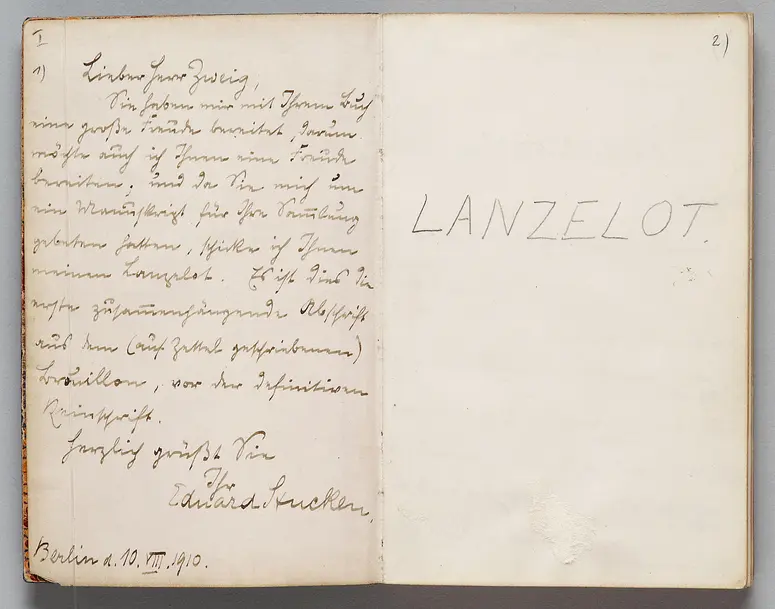 I
1)
Lieber Herr Zweig,
Sie haben mir mit Ihrem Buch
eine große Freude bereitet, darum
möchte auch ich Ihnen eine Freude
bereiten; und da Sie mich um
ein Manuskript für Ihre Sammlung
gebeten hatten, schicke ich Ihnen
meinen Lanzelot. Es ist dies die
erste zusammenhängende Abschrift
aus dem (auf Zettel geschriebenen)
Brouillon, vor der definitiven
Reinschrift.
Herzlich grüßt Sie
Ihr
Eduard Stucken.
Berlin d. 10. VIII. 1910.
2)
LANZELOT.